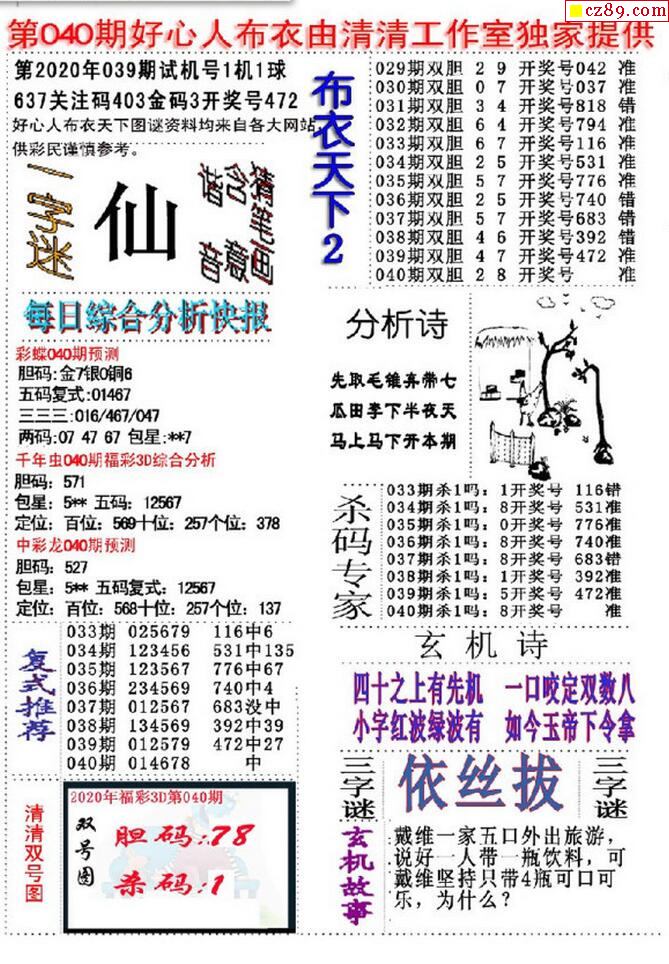 cz89.com
第040期好心人布衣由清清工作室独家提供
第2020年039期试机号1机1球
637关注码403金码3开奖号472
好心人布衣天下图谜资料均来自各大网站,
供彩民谨慎参考。
一字迷
仙
猜笔画
含意
谐音
每日综合分析快报
彩蝶040期预测
胆码:金7银0铜6
五码复式:01467
三三三:016/467/047
两码:07 47 67 包星:**7
千年虫040期福彩3D综合分析
胆码: 571
包星: 5** 五码: 12567
定位: 百位: 569十位: 257个位: 378
中彩龙040期预测
胆码: 527
包星: 5** 五码复式: 12567
定位: 百位: 568十位: 257个位: 137
复式推荐
033期 025679 116中6
034期 123456 531中135
035期 123567 776中67
036期 234569 740中4
037期 012567 683没中
038期 134569 392中39
039期 012579 472中27
040期 014678 中
清清双号图
2020年福彩3D第040期
双号图
胆码:78
杀码:1
布衣天下2
029期双胆 2 9 开奖号042 准
030期双胆 0 7 开奖号037 准
031期双胆 3 4 开奖号818 错
032期双胆 6 4 开奖号794 准
033期双胆 6 7 开奖号116 准
034期双胆 2 5 开奖号531 准
035期双胆 5 7 开奖号776 准
036期双胆 2 5 开奖号740 错
037期双胆 5 7 开奖号683 错
038期双胆 4 6 开奖号392 错
039期双胆 4 7 开奖号472 准
040期双胆 2 8 开奖号 准
分析诗
先取毛锥弃带七
瓜田李下半夜天
马上马下开本期
杀码专家
033期杀1吗: 1开奖号 116错
034期杀1吗: 8开奖号 531准
035期杀1吗: 0开奖号 776准
036期杀1吗: 8开奖号 740准
037期杀1吗: 8开奖号 683错
038期杀1吗: 1开奖号 392准
039期杀1吗: 5开奖号 472准
040期杀1吗: 8开奖号 准
玄机诗
四十之上有先机 一口咬定双数八
小字红波绿波有 如今玉帝下令拿
三字谜
依丝拔
三字谜
玄机故事
戴维一家五口外出旅游,
说好一人带一瓶饮料, 可
戴维坚持只带4瓶可口可
乐, 为什么?